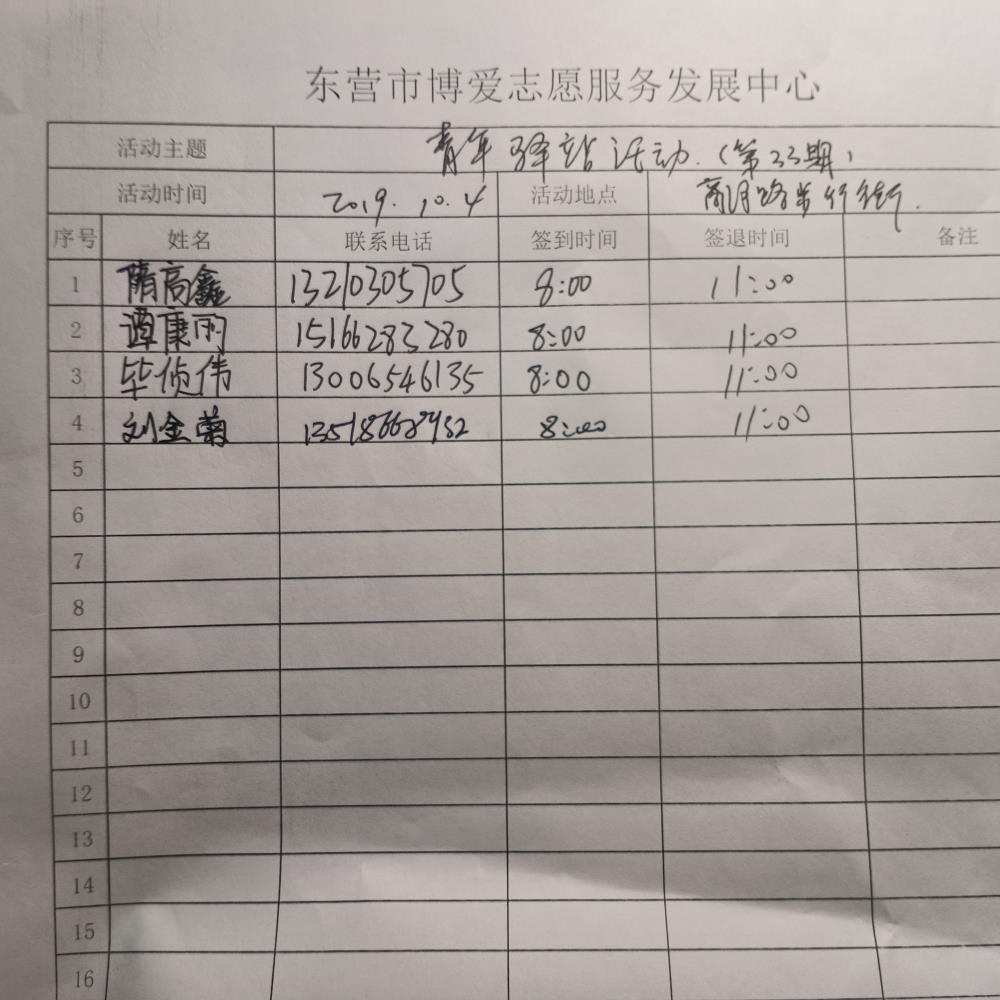 东营市博爱志愿服务发展中心
活动主题 青年驿站活动.(第23期)
活动时间 2019.10.4 活动地点 商河路步行街.
序号 姓名 联系电话 签到时间 签退时间 备注
1 隋高鑫 13210305705 8:00 11:00
2 谭康雨 15166283280 8:00 11:00
3 毕侦伟 13006546135 8:00 11:00
4 刘金菊 8:00 11:00
5
6
7
8
9
10
11
12
13
14
15
16